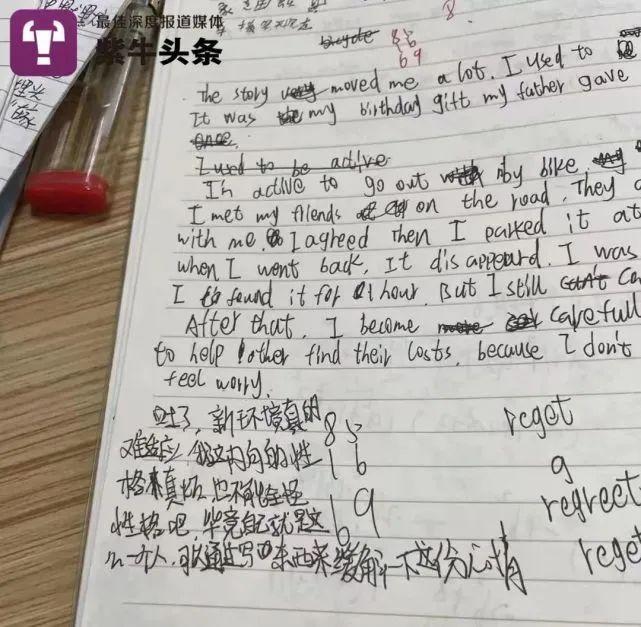 最佳深度报道媒体
紫牛头条
8
bicycle 86
69
The story moved me a lot. I used to
It was my birthday gift my father gave
once.
I used to be active
In active to go out by bike.
I met my friends on the road. They
with me. I agreed then I parked it at
when I went back. It disappeard. I was
I found it for 1 hour. But I still can't
After that. I become carefull
to help other find their losts. because I don't
feel worry.
吐了，新环境真的 85 reget
难适应，我这内向的性 16 9
格真 也不能全怪 regreet
性格吧，毕竟自己就是这 69 reget
么一个人，可以通过写 东西来缓解一下这份心情